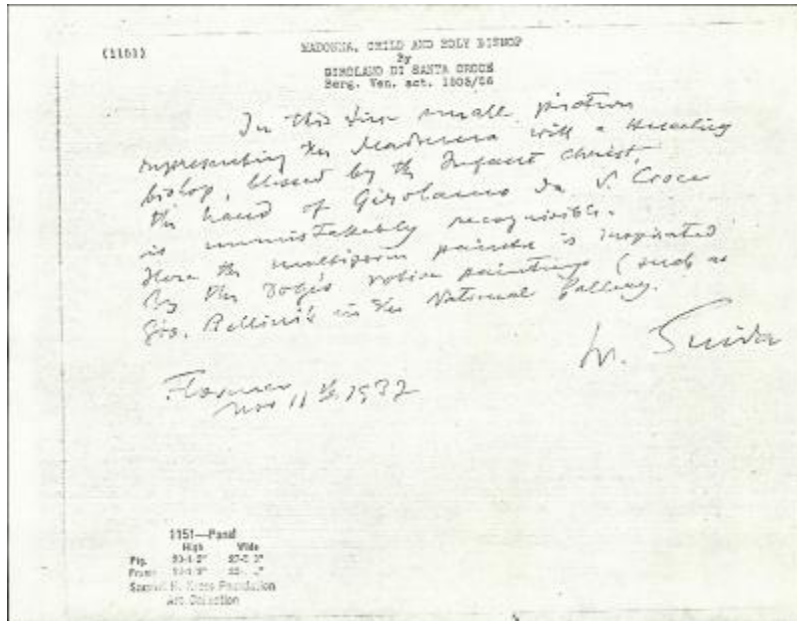 (1151)
MADONNA, CHILD AND HOLY BISHOP
By
GIROLAMO DI SANTA CROCE
Berg. Ven. act. 1503/56
In this fine small picture
representing the Madonna with a kneeling
bishop, blessed by the Infant Christ,
the hand of Girolamo da S. Croce
is unmistakably recognisible.
Here the painter is inspirated
By the Doges votive paintings (such as
Gio. Bellini's in the National Gallery.
W. Suida
Florence
Nov 11th 1937
1151—Panel
High Wide
Pig.
Frame
Samuel H. Kress Foundation
Art Collection